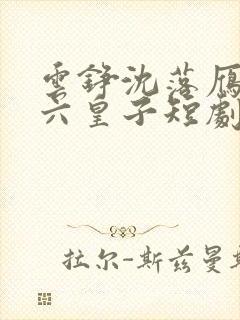 雲錚沈落雁
六皇子短劇
拉尔-斯兹曼斯